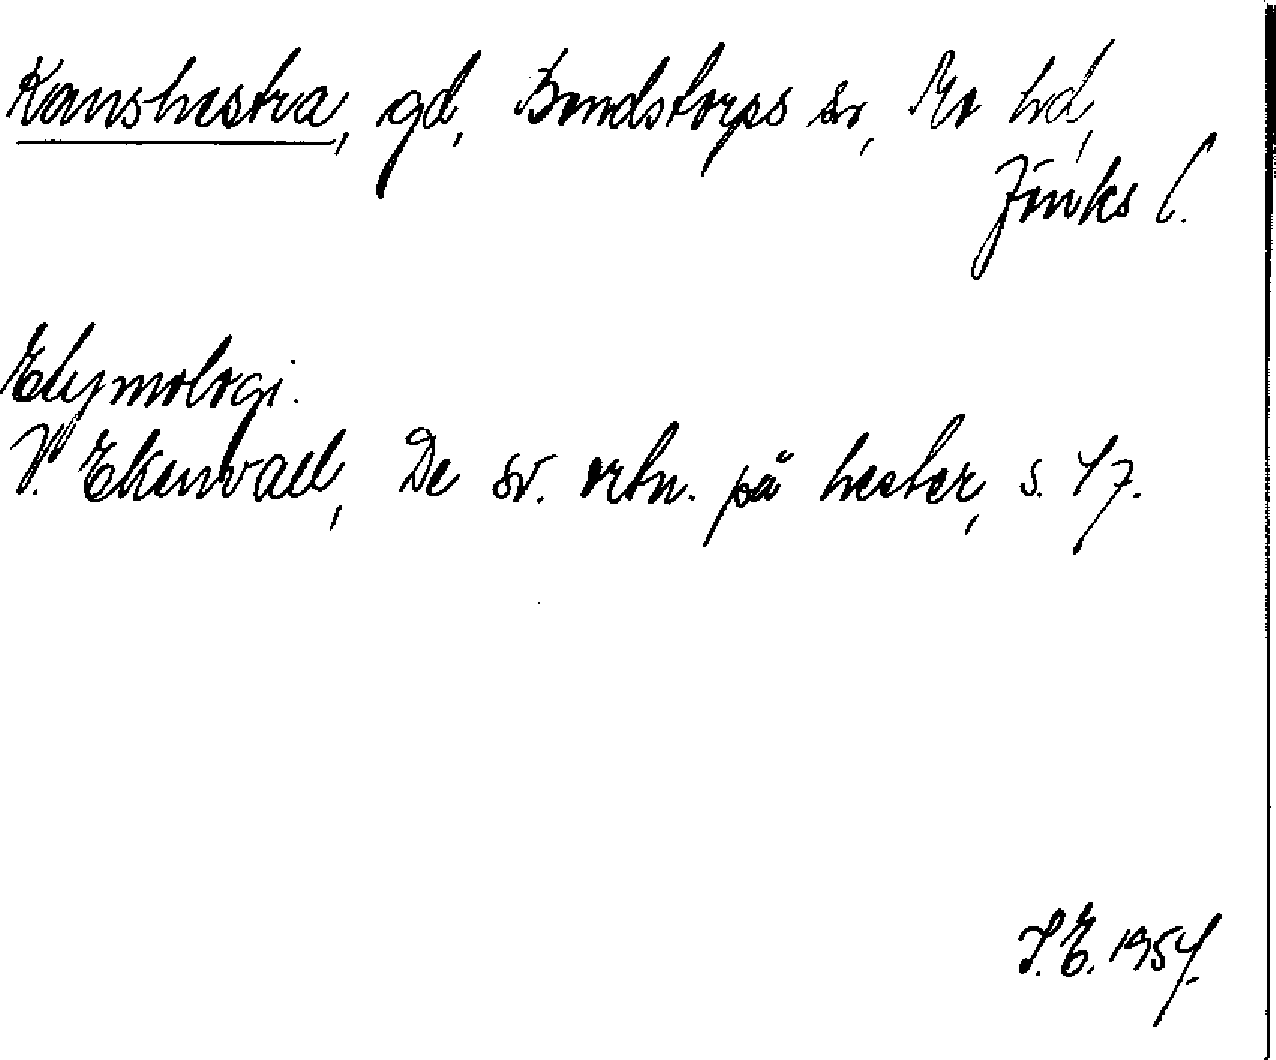 Kanshestra, gd, Bondstorps sn, Mo hd,
Jönks l.
Etymologi.
V. Ekenvall, De sv. ortn. på hester, s. 47.
I.E. 1954.